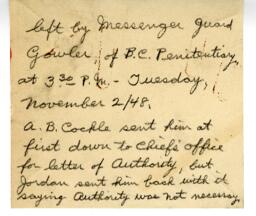 left by Messenger Guard
Gowler, of B.C. Penitentiary,
at 3³⁰ P.M. - Tuesday,
November 2/48.
A. B. Cockle sent him at
first down to Chief's office
for letter of Authority, but
Jordan sent him back with it
saying Authority was not necessary.